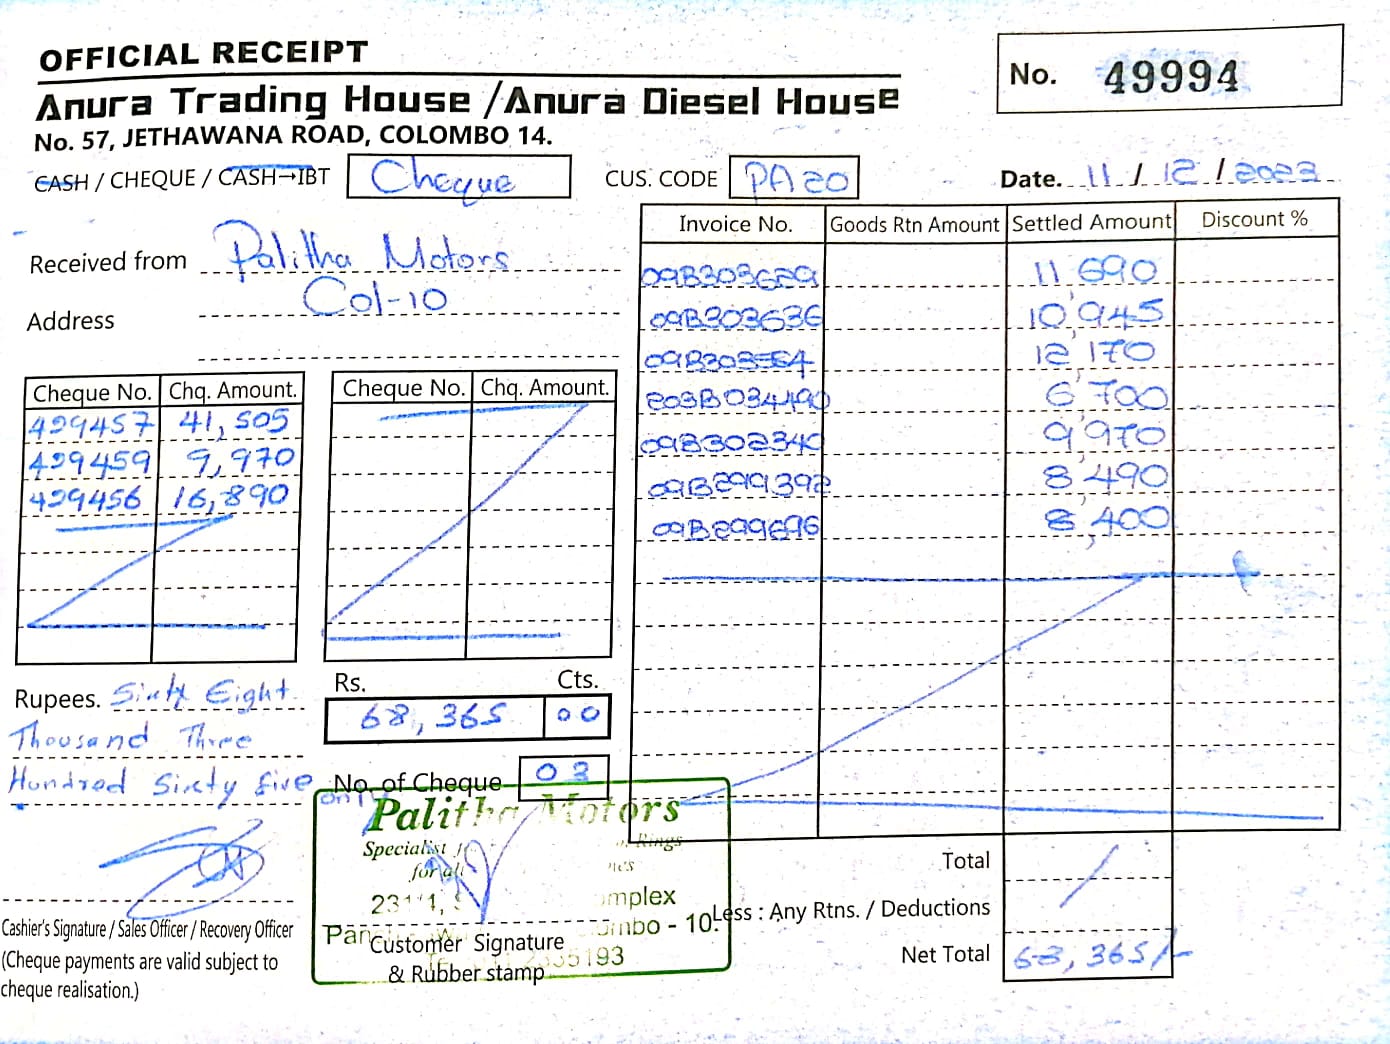 OFFICIAL RECEIPT
No. 49994
Anura Trading House / Anura Diesel House
No. 57, JETHAWANA ROAD, COLOMBO 14.
CASH / CHEQUE / CASH→IBT Cheque CUS. CODE PA20 Date. 11 / 12 / 2023
Received from Palitha Motors
Address Col-10
Cheque No. Chq. Amount. Cheque No. Chq. Amount.
429457 41,505
429459 9,970
429456 16,890
Invoice No. Goods Rtn Amount Settled Amount Discount %
09B303629 11,690
09B303636 10,945
12,170
203B034490 6,700
09B302340 9,970
09B299392 8,490
09B299696 8,400
Rupees. Sixty Eight
Thousand Three
Hundred Sixty five only
Rs. Cts.
68,365 00
No. of Cheque 03
Palitha Motors
Specialist
for all
Rings
mplex
mbo - 10.
193
Customer Signature
& Rubber stamp
Cashier's Signature / Sales Officer / Recovery Officer
(Cheque payments are valid subject to
cheque realisation.)
Total
Less : Any Rtns. / Deductions
Net Total 68,365/-